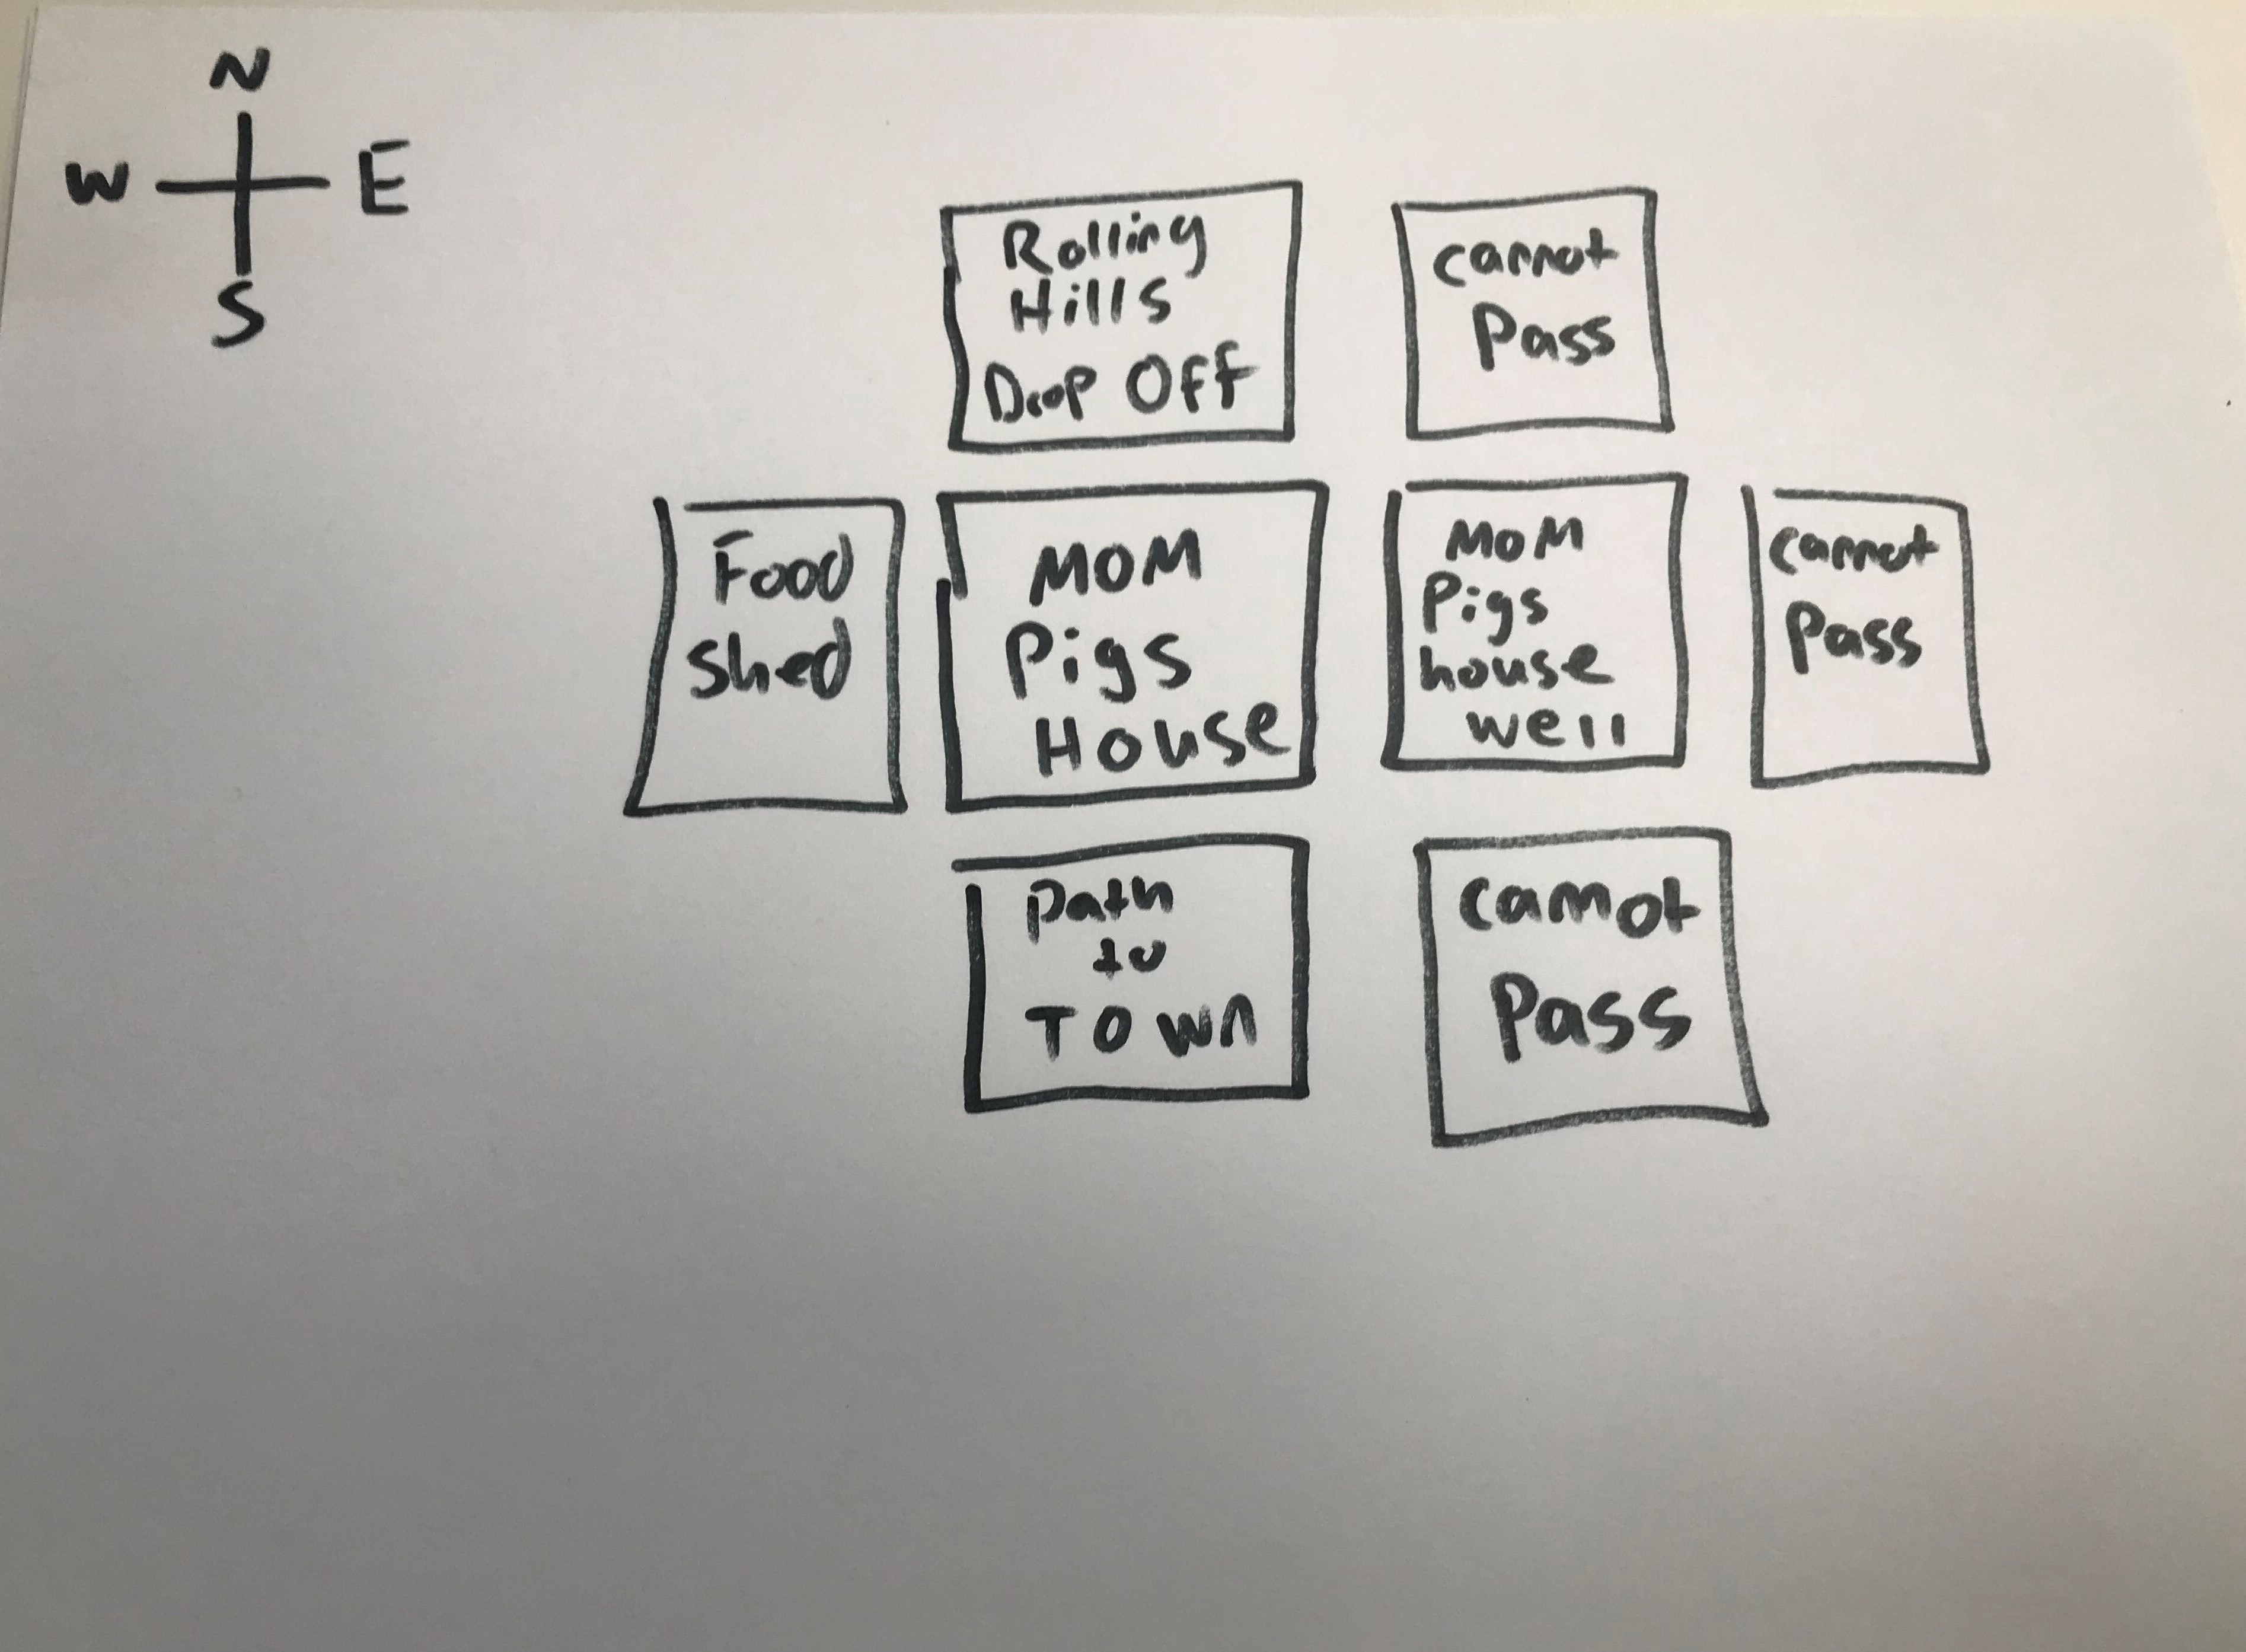 N
W E
S
Rolling
Hills
Drop Off
cannot
Pass
Food
shed
MOM
Pigs
House
MOM
Pigs
house
well
cannot
Pass
path
to
TOWN
cannot
Pass